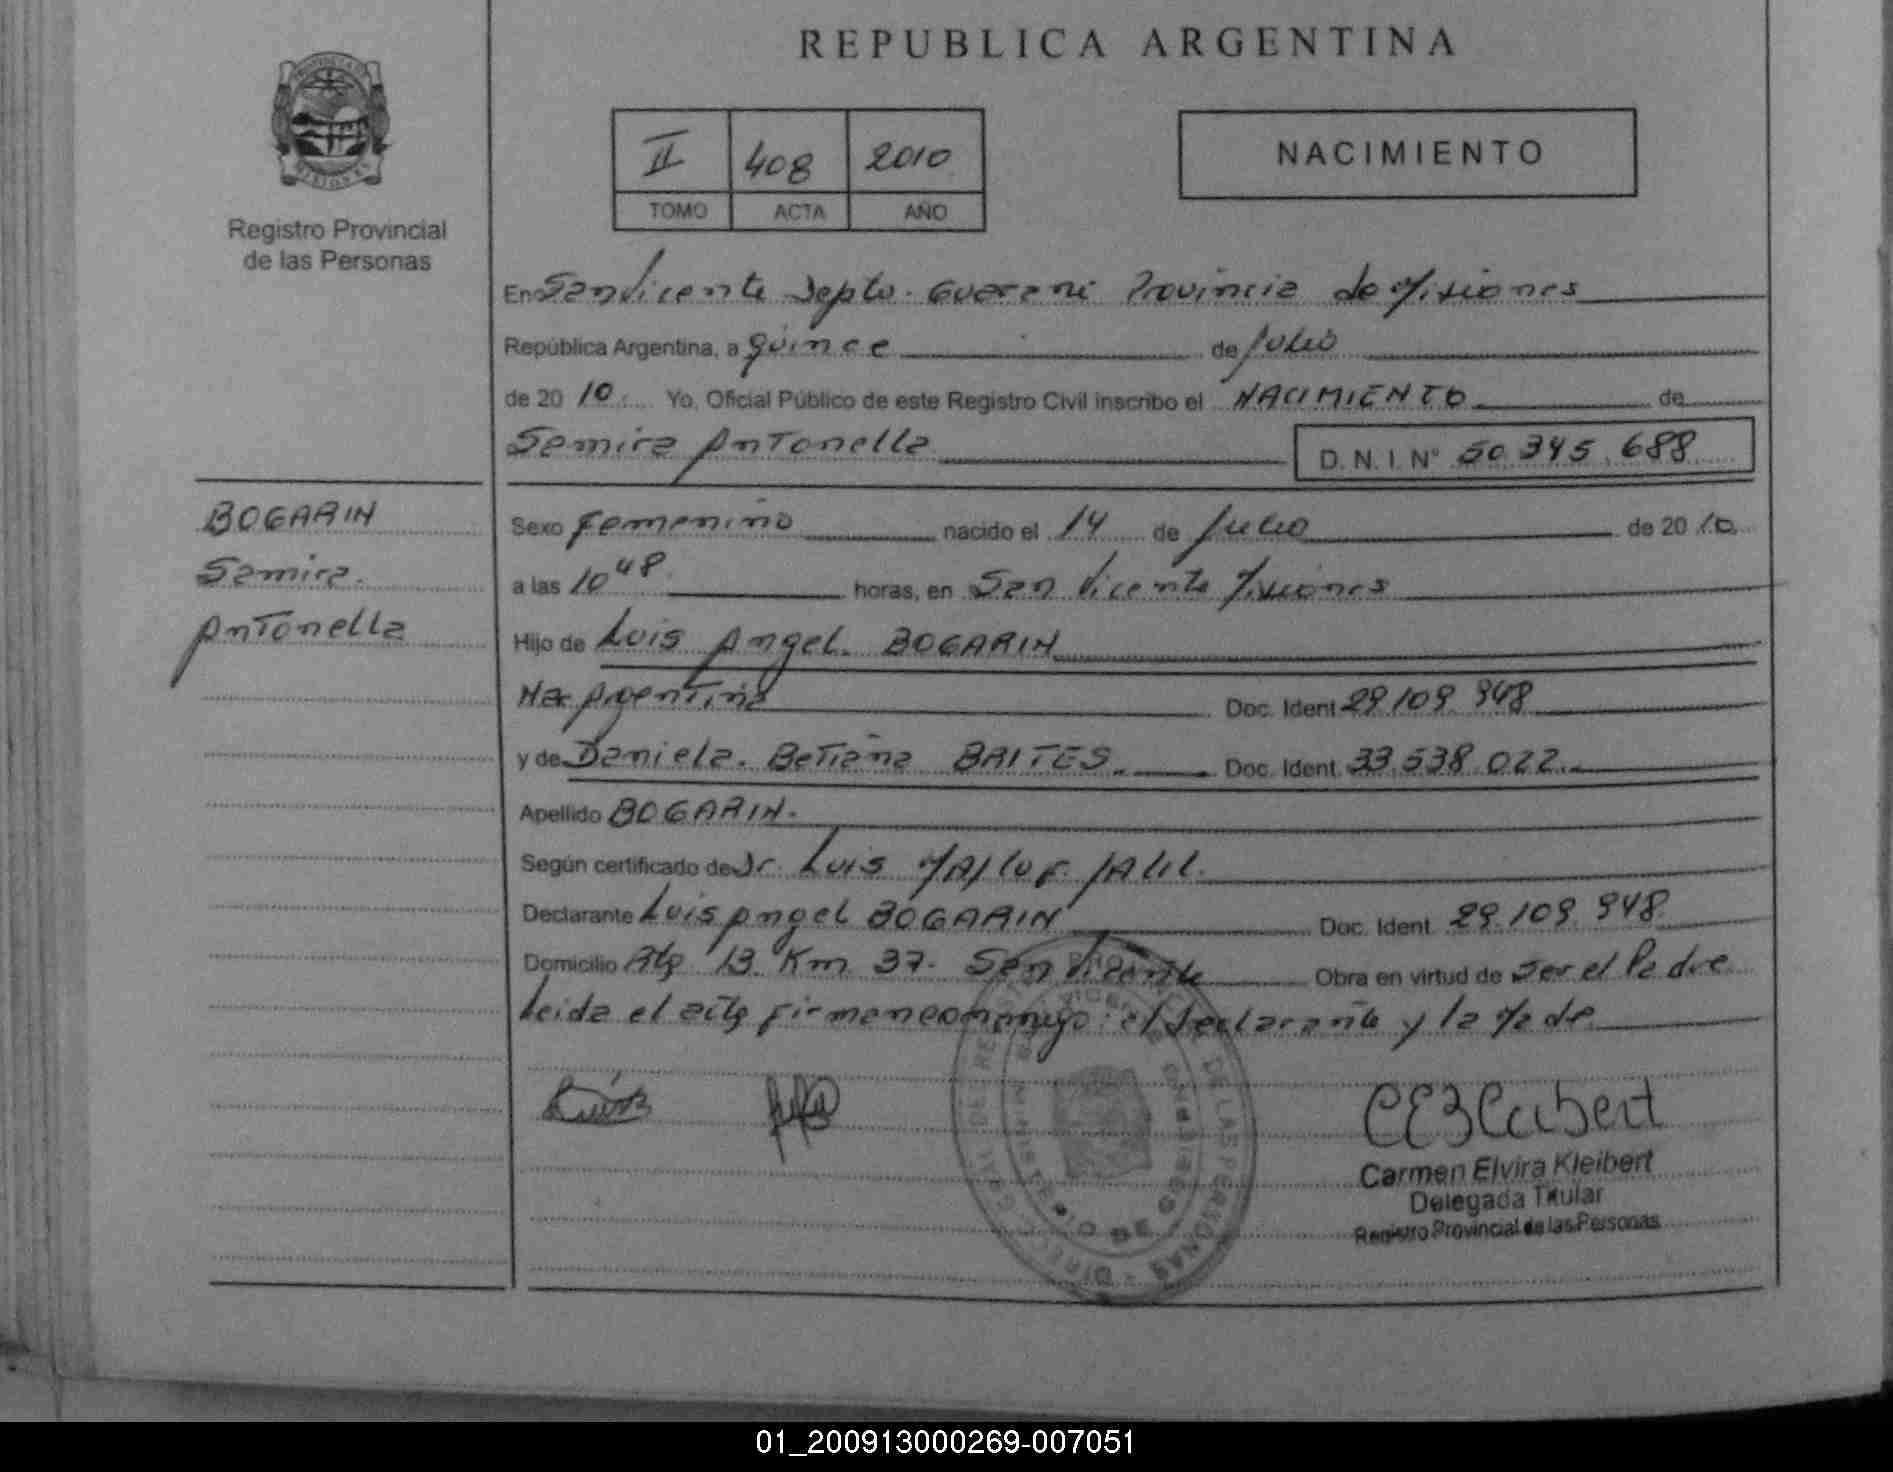 REPUBLICA ARGENTINA
PROVINCIA DE
MISIONES
Registro Provincial
de las Personas
II 408 2010
TOMO ACTA AÑO
NACIMIENTO
En San Vicente Depto. Guarani Provincia de Misiones
República Argentina, a quince de Julio
de 20 10 Yo, Oficial Público de este Registro Civil inscribo el NACIMIENTO de
Samira Antonella D.N.I. N° 50.345.688
BOGARIN
Samira
Antonella
Sexo Femenino nacido el 14 de Julio de 20 10
a las 10 48 horas, en San Vicente Misiones
Hijo de Luis Angel BOGARIN
Nac Argentina Doc. Ident 29.109.948
y de Daniela Betiana BRITES Doc. Ident. 33.538.022
Apellido BOGARIN.
Según certificado de Dr. Luis JALIL.
Declarante Luis Angel BOGARIN Doc. Ident. 29.109.948
Domicilio 13 Km 37. San Vicente Obra en virtud de ser el Padre
Leida el acta firman conmigo: el declarante y la Madre
Carmen Elvira Kleibert
Delegada Titular
Registro Provincial de las Personas
01_200913000269-007051